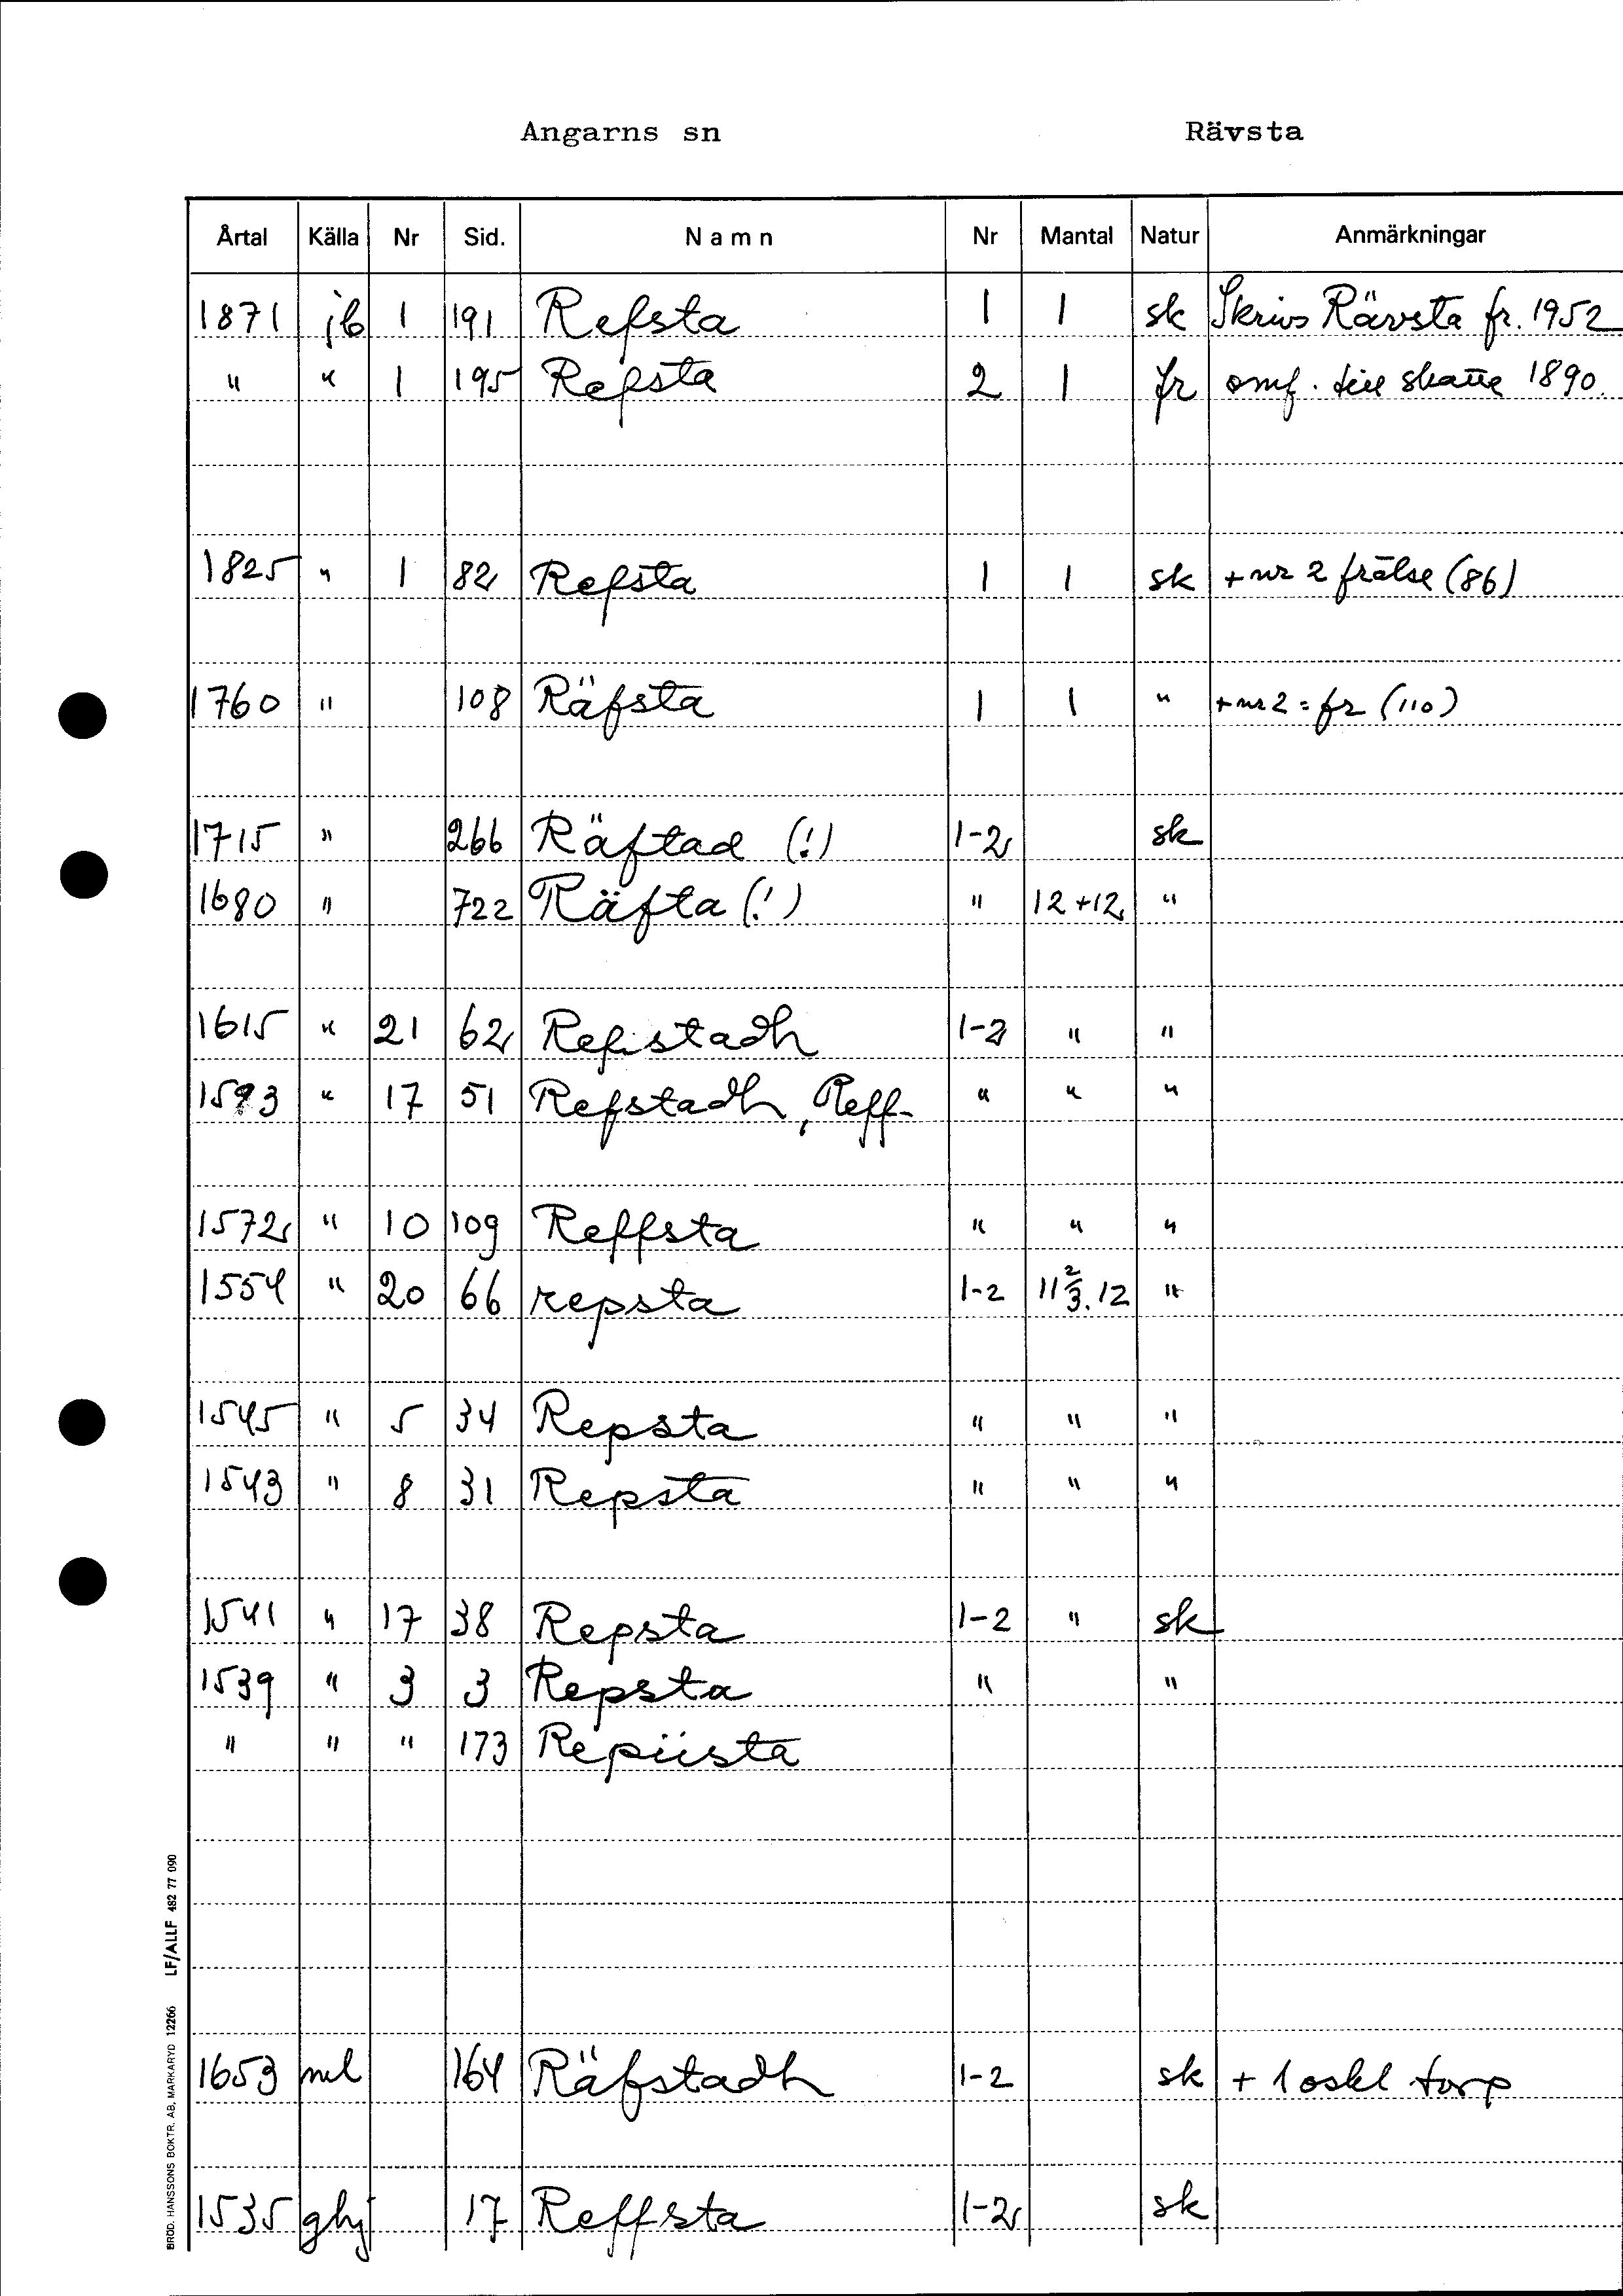 Angarns sn Rävsta
Årtal Källa Nr Sid. Namn Nr Mantal Natur Anmärkningar
1871 jb 1 191 Refsta 1 1 sk Skrivs Rävsta fr. 1952
" " 1 195 Refsta 2 1 fr omf. till skatte 1890.
1825 " 1 82 Refsta 1 1 sk + nr 2 frälse (86)
1760 " 108 Räfsta 1 1 " + nr 2 = fr (110)
1715 " 266 Räftad (!) 1-2 sk
1680 " 722 Räfta (!) " 12+12 "
1615 " 21 62 Refstadh 1-2 " "
1593 " 17 51 Refstadh, Reff- " " "
1572 " 10 109 Reffsta " " "
1554 " 20 66 repsta 1-2 11 2/3. 12 "
1545 " 5 34 Repsta " " "
1543 " 8 31 Repsta " " "
1541 " 17 38 Repsta 1-2 " sk
1539 " 3 3 Repsta " "
" " " 173 Repiista
1653 ml 164 Räfstadh 1-2 sk + 1 oskl torp
1535 ghj 17 Reffsta 1-2 sk
BRÖD. HANSSONS BOKTR. AB, MARKARYD 12266 LF/ALLF 482 77 090